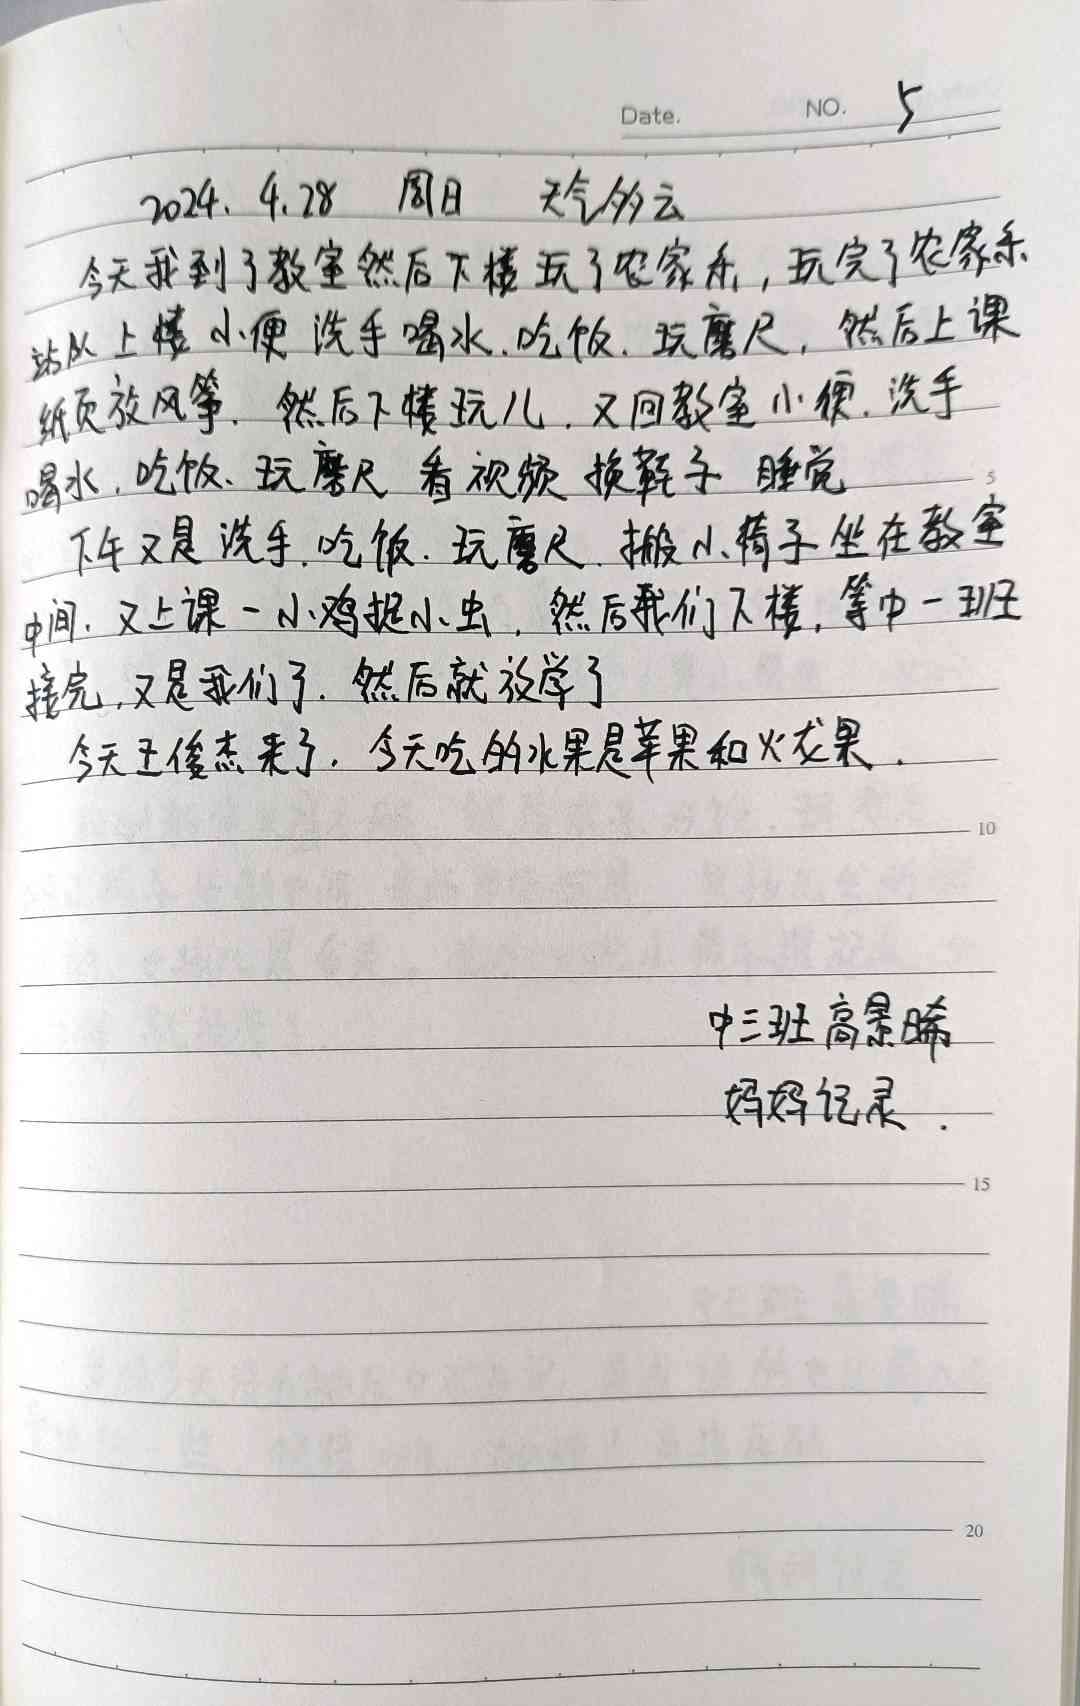 Date. NO. 5
2024.4.28 周日 天气多云
今天我到了教室然后下楼玩了农家乐，玩完了农家乐
站队上楼小便洗手喝水.吃饭.玩魔尺，然后上课
纸页放风筝.然后下楼玩儿.又回教室小便.洗手
喝水.吃饭、玩魔尺看视频换鞋子睡觉
下午又是洗手.吃饭.玩魔尺.搬小椅子坐在教室
中间.又上课一小鸡捉小虫.然后我们下楼,等中一班
接完,又是我们了.然后就放学了
今天王俊杰来了.今天吃的水果是苹果和火龙果.
5
10
中三班高景晞
妈妈记录.
15
20